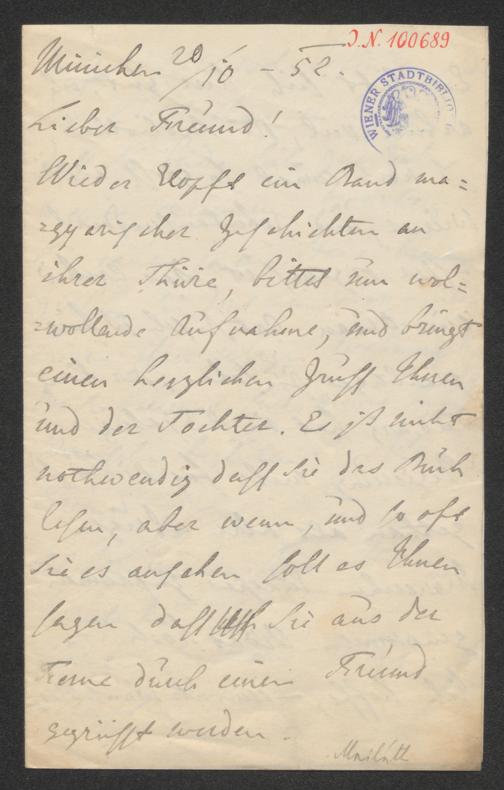 J. N. 100689
WIENER STADTBIBLIO
München 20/10 – 52.
Lieber Freund!
Wieder klopft ein Band ma=
=gyarischer Geschichten an
ihrer Thüre, bittet um wol=
=wollende Aufnahme, und bringt
einen herzlichen Gruß Ihnen
und der Tochter. Es ist nicht
nothwendig daß Sie das Buch
lesen, aber wenn, und so oft
Sie es ansehen soll es Ihnen
sagen daß Sie aus der
Ferne durch einen Freund
gegrüßt werden.
Mailáth